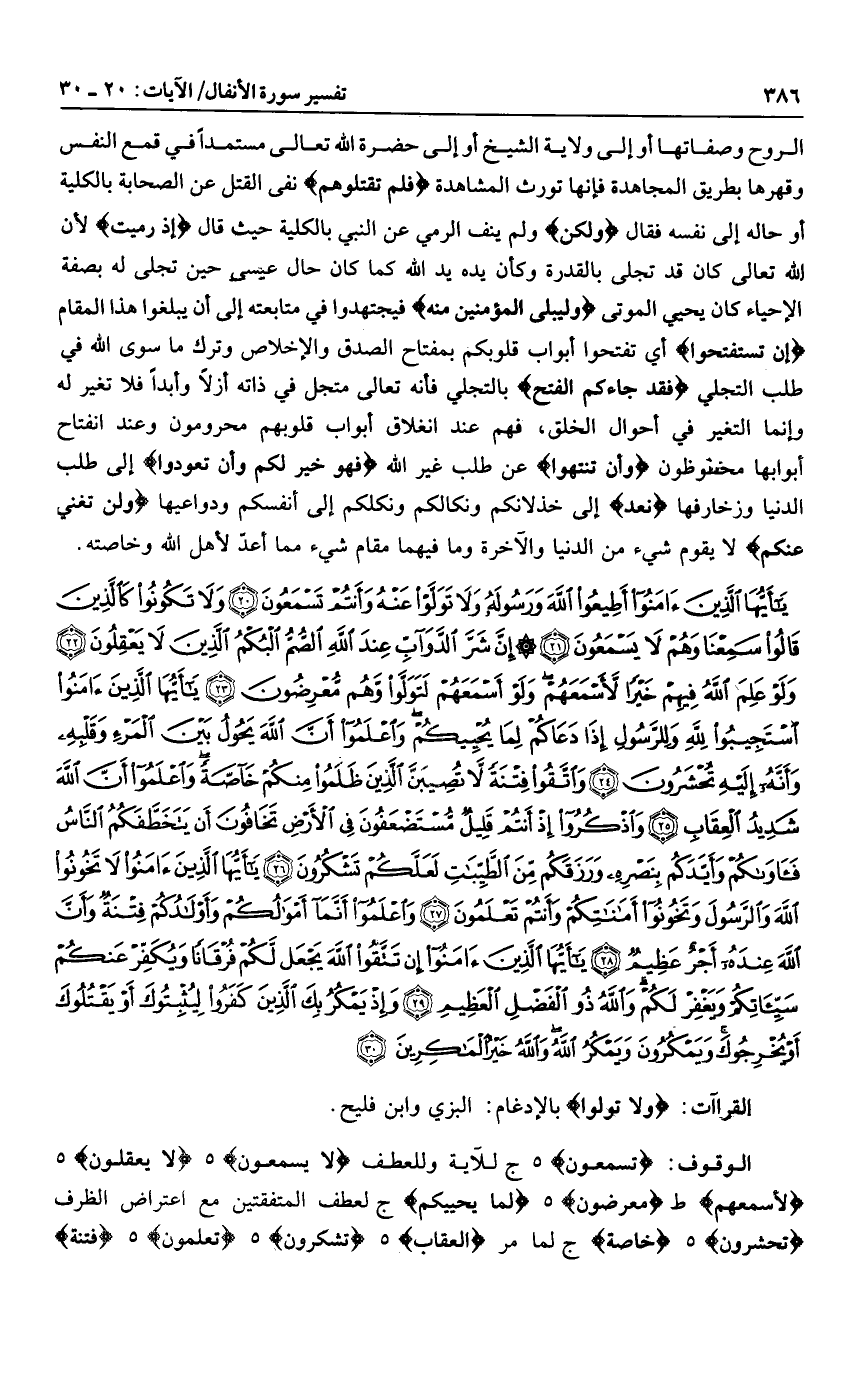 ٣٨٦ تفسير سورة الأنفال/ الآيات: ٢٠ ـ ٣٠
الروح وصفاتها أو إلى ولاية الشيخ أو إلى حضرة الله تعالى مستمداً في قمع النفس
وقهرها بطريق المجاهدة فإنها تورث المشاهدة ﴿فلم تقتلوهم﴾ نفى القتل عن الصحابة بالكلية
أو حاله إلى نفسه فقال ﴿ولكن﴾ ولم ينف الرمي عن النبي بالكلية حيث قال ﴿إذ رميت﴾ لأن
الله تعالى كان قد تجلى بالقدرة وكأن يده يد الله كما كان حال عيسى حين تجلى له بصفة
الإحياء كان يحيي الموتى ﴿وليبلى المؤمنين منه﴾ فيجتهدوا في متابعته إلى أن يبلغوا هذا المقام
﴿إن تستفتحوا﴾ أي تفتحوا أبواب قلوبكم بمفتاح الصدق والإخلاص وترك ما سوى الله في
طلب التجلي ﴿فقد جاءكم الفتح﴾ بالتجلي فأنه تعالى متجل في ذاته أزلاً وأبداً فلا تغير له
وإنما التغير في أحوال الخلق، فهم عند انغلاق أبواب قلوبهم محرومون وعند انفتاح
أبوابها محفظوظون ﴿وأن تنتهوا﴾ عن طلب غير الله ﴿فهو خير لكم وأن تعودوا﴾ إلى طلب
الدنيا وزخارفها ﴿نعد﴾ إلى خذلانكم ونكالكم ونكلكم إلى أنفسكم ودواعيها ﴿ولن تغني
عنكم﴾ لا يقوم شيء من الدنيا والآخرة وما فيهما مقام شيء مما أعدّ لأهل الله وخاصته.
يَٰٓأَيُّهَا ٱلَّذِينَ ءَامَنُوٓا۟ أَطِيعُوا۟ ٱللَّهَ وَرَسُولَهُۥ وَلَا تَوَلَّوْا۟ عَنْهُ وَأَنتُمْ تَسْمَعُونَ ﴿٢٠﴾ وَلَا تَكُونُوا۟ كَٱلَّذِينَ
قَالُوا۟ سَمِعْنَا وَهُمْ لَا يَسْمَعُونَ ﴿٢١﴾ ۞ إِنَّ شَرَّ ٱلدَّوَآبِّ عِندَ ٱللَّهِ ٱلصُّمُّ ٱلْبُكْمُ ٱلَّذِينَ لَا يَعْقِلُونَ ﴿٢٢﴾
وَلَوْ عَلِمَ ٱللَّهُ فِيهِمْ خَيْرًا لَّأَسْمَعَهُمْ ۖ وَلَوْ أَسْمَعَهُمْ لَتَوَلَّوا۟ وَّهُم مُّعْرِضُونَ ﴿٢٣﴾ يَٰٓأَيُّهَا ٱلَّذِينَ ءَامَنُوا۟
ٱسْتَجِيبُوا۟ لِلَّهِ وَلِلرَّسُولِ إِذَا دَعَاكُمْ لِمَا يُحْيِيكُمْ ۖ وَٱعْلَمُوٓا۟ أَنَّ ٱللَّهَ يَحُولُ بَيْنَ ٱلْمَرْءِ وَقَلْبِهِۦ
وَأَنَّهُۥٓ إِلَيْهِ تُحْشَرُونَ ﴿٢٤﴾ وَٱتَّقُوا۟ فِتْنَةً لَّا تُصِيبَنَّ ٱلَّذِينَ ظَلَمُوا۟ مِنكُمْ خَآصَّةً ۖ وَٱعْلَمُوٓا۟ أَنَّ ٱللَّهَ
شَدِيدُ ٱلْعِقَابِ ﴿٢٥﴾ وَٱذْكُرُوٓا۟ إِذْ أَنتُمْ قَلِيلٌ مُّسْتَضْعَفُونَ فِى ٱلْأَرْضِ تَخَافُونَ أَن يَتَخَطَّفَكُمُ ٱلنَّاسُ
فَـَٔاوَىٰكُمْ وَأَيَّدَكُم بِنَصْرِهِۦ وَرَزَقَكُم مِّنَ ٱلطَّيِّبَٰتِ لَعَلَّكُمْ تَشْكُرُونَ ﴿٢٦﴾ يَٰٓأَيُّهَا ٱلَّذِينَ ءَامَنُوا۟ لَا تَخُونُوا۟
ٱللَّهَ وَٱلرَّسُولَ وَتَخُونُوٓا۟ أَمَٰنَٰتِكُمْ وَأَنتُمْ تَعْلَمُونَ ﴿٢٧﴾ وَٱعْلَمُوٓا۟ أَنَّمَآ أَمْوَٰلُكُمْ وَأَوْلَٰدُكُمْ فِتْنَةٌ وَأَنَّ
ٱللَّهَ عِندَهُۥٓ أَجْرٌ عَظِيمٌ ﴿٢٨﴾ يَٰٓأَيُّهَا ٱلَّذِينَ ءَامَنُوٓا۟ إِن تَتَّقُوا۟ ٱللَّهَ يَجْعَل لَّكُمْ فُرْقَانًا وَيُكَفِّرْ عَنكُمْ
سَيِّـَٔاتِكُمْ وَيَغْفِرْ لَكُمْ ۗ وَٱللَّهُ ذُو ٱلْفَضْلِ ٱلْعَظِيمِ ﴿٢٩﴾ وَإِذْ يَمْكُرُ بِكَ ٱلَّذِينَ كَفَرُوا۟ لِيُثْبِتُوكَ أَوْ يَقْتُلُوكَ
أَوْ يُخْرِجُوكَ ۚ وَيَمْكُرُونَ وَيَمْكُرُ ٱللَّهُ ۖ وَٱللَّهُ خَيْرُ ٱلْمَٰكِرِينَ ﴿٣٠﴾
القراآت: ﴿ولا تولوا﴾ بالإدغام: البزي وابن فليح.
الوقوف: ﴿تسمعون﴾ ٥ ج للآية وللعطف ﴿لا يسمعون﴾ ٥ ﴿لا يعقلون﴾ ٥
﴿لأسمعهم﴾ ط ﴿معرضون﴾ ٥ ﴿لما يحييكم﴾ ج لعطف المتفقتين مع اعتراض الظرف
﴿تحشرون﴾ ٥ ﴿خاصة﴾ ج لما مر ﴿العقاب﴾ ٥ ﴿تشكرون﴾ ٥ ﴿تعلمون﴾ ٥ ﴿فتنة﴾